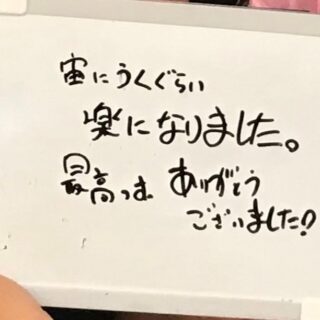 宙にうくぐらい
楽になりました。
最高っす ありがとう
ございました!?